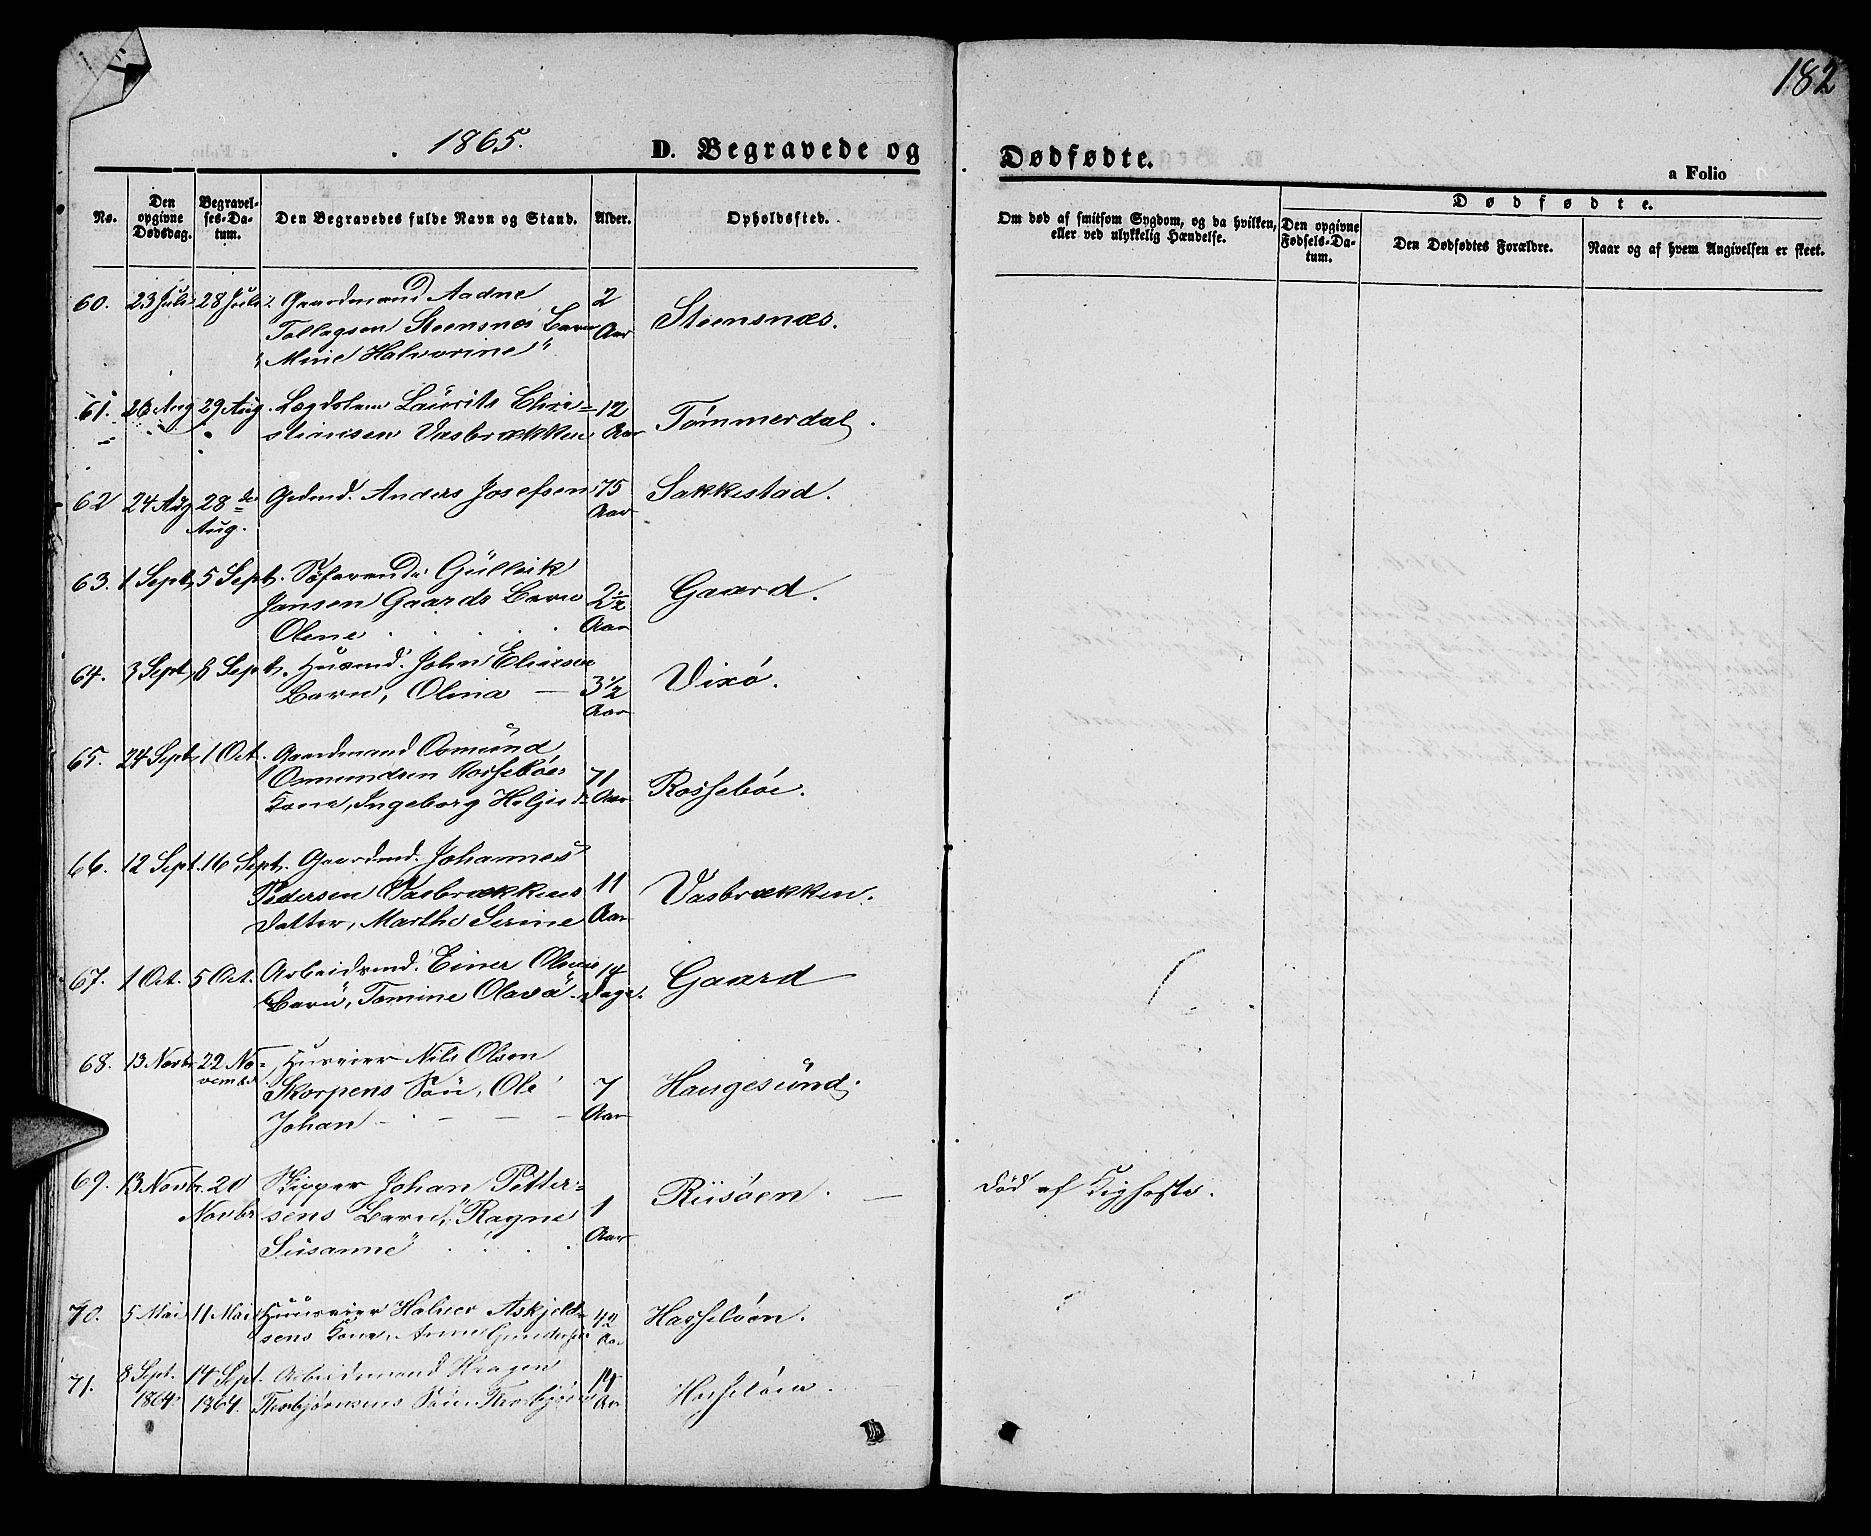 182
1865.
D. Begravede og Dødfødte.
a Folio
No.
Den opgivne Dødsdag.
Begravelses-Datum.
Den Begravedes fulde Navn og Stand.
Alder.
Opholdssted.
Om død af smitsom Sygdom, og da hvilken, eller ved ulykkelig Hændelse.
Dødfødte.
Den opgivne Fødsels-Datum.
Den Dødfødtes Forældre.
Naar og af hvem Angivelsen er skeet.
60. 23 Juli 28 Juli Gaardmand Aadne 2 Steensnæs.
Tollagsen Steensnæs Barn Aar
"Mine Halvorine"
61. 26 Aug 29 Aug. Lægdslem Laurits Chri= 12 Tømmerdal.
stiansen Vasbrækken Aar
62 24 Aug 28de Grdmd. Anders Josefsen 75 Sakkestad.
Aug. Aar
63. 1 Sept. 5 Sept. Søfarende Gullik
Jansen Gaards Barn 2½ Gaard.
Olene Aar
64. 3 Sept. 8 Sept. Husmd. John
Barn, Olina 3½ Vixø.
Aar
65. 24 Sept. 1 Oct. Gaardmand Osmund
Osmundsen Rossebøes 71 Rossebøe.
Kone, Ingeborg Aar
66. 12 Sept. 16 Sept. Gaardmd. Johannes
Pedersen Vasbrækkens 11 Vasbrækken.
Datter, Marthe Serine Aar
67. 1 Oct. 5 Oct. Arbeidsmd. Einer Olsens 14 Gaard
Barn, Tomine Olava Dage.
68. 13 Novbr. 22 No= Huseier Nils Olsen
vembr. Skorpens Søn, Ole 7 Haugesund.
Johan Aar
69. 13 Novbr. 20 Skipper Johan Petter= Riisøen. Død af Kighoste.
Novbr sens Barn, "Ragne 1
Susanne" Aar
70. 5 Mai 11 Mai Huuseier Halvor Askjeld= 42 Hasseløen.
sens Kone, Anne Aar
71. 8 Sept. 14 Sept. Arbeidsmand Haagen 14 Hasseløen.
1864. 1864. Thorbjørnsens Søn Thorbjørn Aar